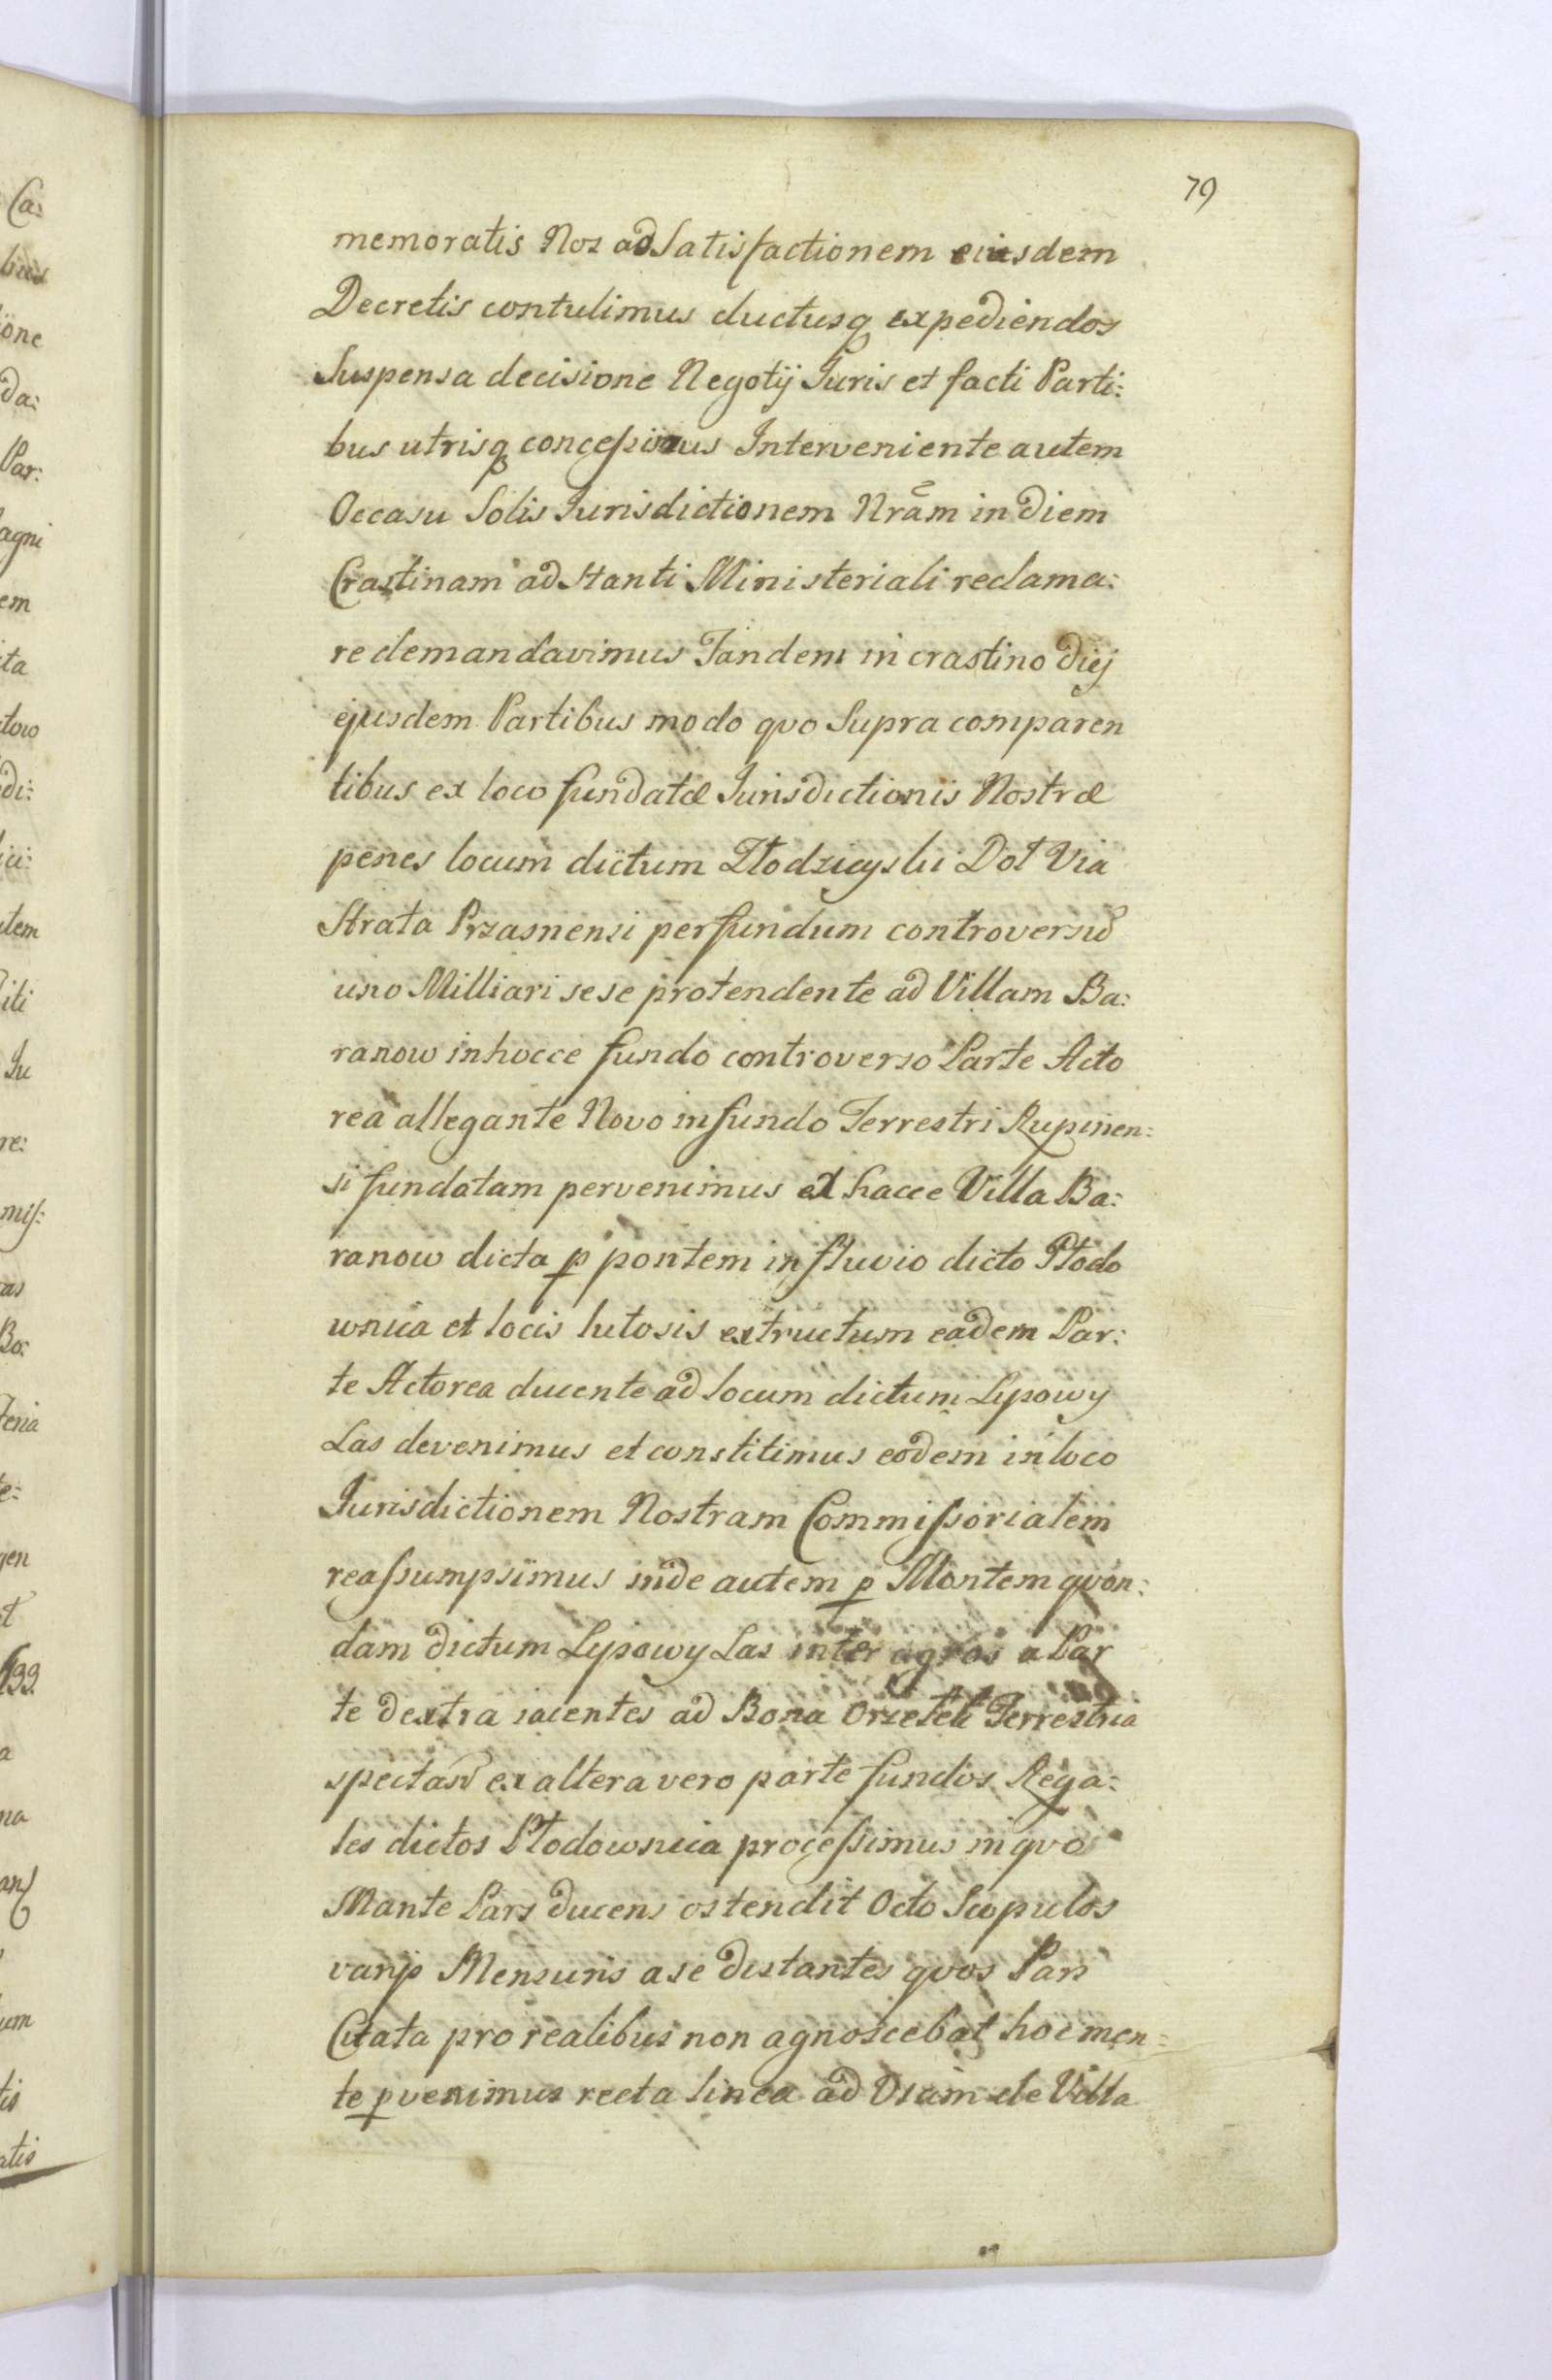 79
memoratis Nos ad Satisfactionem eiusdem
Decretis contulimus ductusq expediendos
Suspensa decisione Negotij Juris et facti Parti:
bus utrisq concessimus Interveniente autem
Occasu Solis Jurisdictionem Nram̃ in diem
Crastinam adstanti Ministeriali reclama:
re demandavimus Tandem in crastino diej
ejusdem Partibus modo qvo Supra comparen
tibus ex loco fundatæ Jurisdictionis Nostræ
penes locum dictum Złodzieyski Doł Via
Strata Przasnensi per fundum controversũ
uno Milliari sese protendente ad Villam Ba:
ranow in hocce fundo controverso Parte Acto
rea allegante Novo in fundo Terrestri Rupinen:
si fundatam pervenimus ex hacce Villa Ba:
ranow dicta p pontem in fluvio dicto Płodo
wnica et locis lutosis extructum eadem Par:
te Actorea ducente ad locum dictum Lypowy
Las devenimus et constitimus eodem in loco
Jurisdictionem Nostram Commissorialem
reassumpsimus inde autem p Montem qvon:
dam dictum Lypowy Las inter agros a Par
te dextra iacentes ad Bona Orzełek Terrestria
spectañ ex altera vero parte fundos Rega:
les dictos Płodownica processimus in qvo
Mante Pars ducens ostendit Octo Scopulos
varijs Mensuris a se distantes qvos Pars
Citata pro realibus non agnoscebat hoc men:
te pvenimus recta linea ad Viam de Villa
Ca:
bus
ione
da:
Par:
agni
em
ita
di:
tem
iti
Ju
re:
miſ:
as
Bo:
te:
gen
t
a
na
um
tis
atis